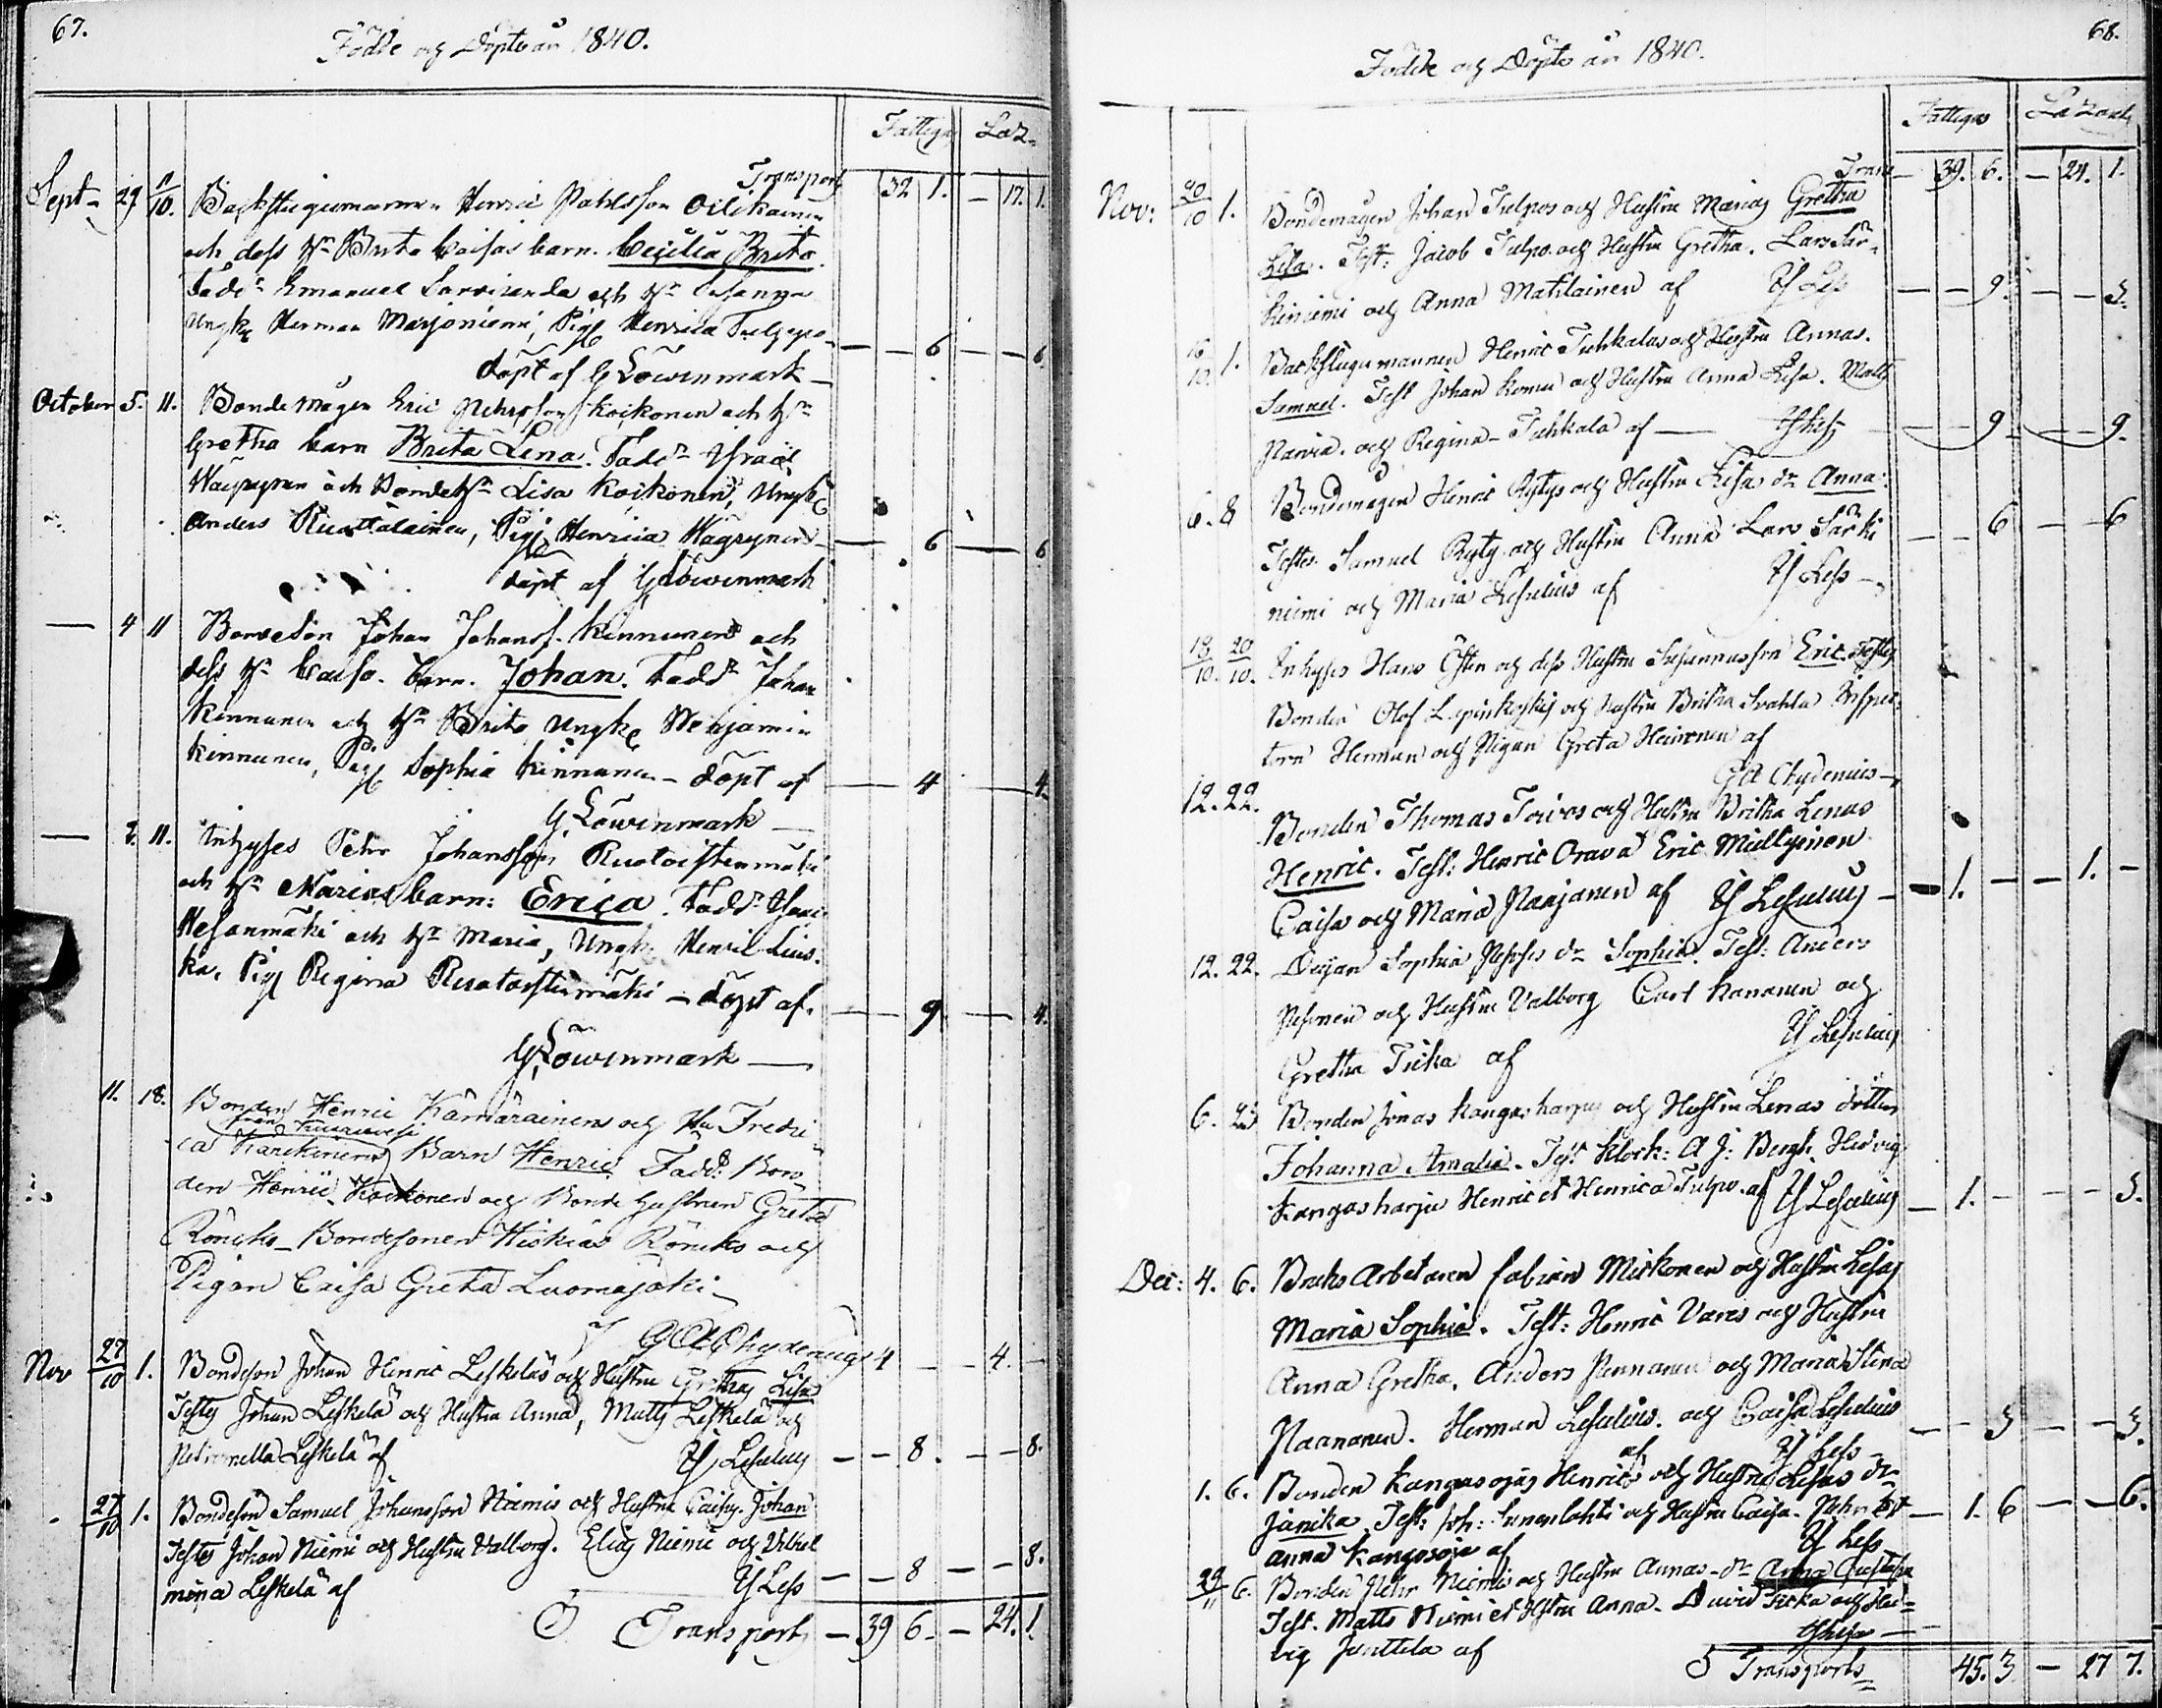 67.
Födde och Döpte år 1840.
Fattiga Laz.
Transport 32 1. - 17. 1.
Sept- 29 11/10. Backstugumannen Henric Påhlsson Oilikainen
och dess Hu Brita Caisas barn. Cecilia Brita.
Fadd: Emanuel och Hu Susanna
Ungk Herman Marjoniemi, Pig Henrica - - 6 - - 6.
döpt af G Löwenmark
October 5. 11. Bondemågen Eric Pehrsson Koikonen och Hu
Gretha barn Brita Lena. Fadd Israël
Wäyrynen och Bondehu Lisa Koikonen, Ungk
Anders Ruottalainen, Pig Henrica Wäyrynen - 6 - 6
döpt af G Löwenmark
- 4 11 Bondeson Johan Johanss. Kinnunen och
dess Hu Caisa. barn. Johan. Fadd Johan
Kinnunen och Hu Brita Ungk Benjamin
Kinnunen, Pig Sophia Kinnunen - döpt af - 4 - 4.
G. Löwenmark -
- 2. 11. Inhyses Petter Johansson Ruotoistenmäki
och Hu Marias barn: Erica. Fadd
Wesanmäki och Hu Maria, Ungk. Henric Lius-
ka, Pig Regina Ruotoistenmäki - döpt af. - 9 - 4.
G. Löwenmark -
11. 18. Bonden Henric Kämäräinens och Hu Fredri-
från
ca Karckinens Barn Henric. Fadd: Bon-
den Henric Koikonen och Bonde hustrun Greta
Röncko - Bondesonen Hiskias Röncko och
Pigan Caisa Greta Luomajoki -
G A Chydenius 4 - 4. -
Nov 27/10 1. Bondeson Johan Henric Leskeläs och Hustru Grethas Lisa
Testes Johan Leskelä och Hustru Anna, Matts Leskelä och
Petronella Leskelä af - - 8. - - 8.
27/10 1. Bondeson Samuel Johansson Niemis och Hustru Caisas. Johan
Testes Johan Niemi och Hustru Valborg. Elias Niemi och Vilhel
mina Leskelä af - - 8 - - 8.
Transport - 39 6. - 24. 1.
68.
Födde och Döpte år 1840.
Fattigas Lazarets
Trans - 39. 6. - 24. 1.
Nov: 20/10 1. Bondemågen Johan Tulpos och Hustru Marias Gretha
Lisa. Test: Jacob Tulpo och Hustru Gretha. Lars Sär-
kiniemi och Anna Matilainen af - - 9. - - 3.
16/10. 1. Backstugumannen Henric Tuhkalas och Hustru Annas.
Samuel. Test Johan Komu och Hustru Anna Lisa. Matts
och Regina Tuhkala af - - 9 - - 9.
6. 8 Bondemågen Henric Rytys och Hustru Lisas dr Anna.
Testes. Samuel Ryty och Hustru Anna Lars Särki
niemi och Maria Lesulius af - - 6 - 6
18/10. 20/10. Inhyses Hans Östen och dess Hustru Susannas son Eric. Testes
Bonden Olof Lepinkoskij och Hustru Britha Svahla Inspec-
torn Herman och Pigan Greta Heinonen af
G A Chydenius -
12. 22. Bonden Thomas Toivos och Hustru Britha Lenas
Henric. Test: Henric Orava Eric Mullyinen
Caisa och Maria Manjanen af Lesulius - 1. - - 1. -
12. 22. Deijan Sophia dr Sophia. Test: Anders
och Hustru Valborg Carl Kananen och
Gretha Ticka af Lesulius
6. 23 Bonden Jonas Kangasharjus och Hustru Lenas dotter
Johanna Amalia. Test Klock: A J: Bergh. Hedvig
Kangasharju Henric et Henrica Tulpo. af Lesulius - 1. - - - 3.
Dec: 4. 6. Bruks Arbetaren Fabian Miskonen och Hustru Lisas
Maria Sophia. Test: Henric Vares och Hustru
Anna Gretha, Anders Pennanen och Maria Stina
Naananen. Herman Lesulius. och Caisa Lesulius - - 3 - - 3.
af
1. 6. Bonden Kangasojas Henrics och Hustru Lisas dr
Janika. Test: Joh: Sunenlahti och Hustru Caisa. Pehr et - 1. 6 - - 6.
Anna Kangasoja af
29/11 6. Bonden Pehr Niemis och Hustru Annas dr Anna Gustava
Test. Matts Niemi et Hustru Anna. David Ticka och Hed-
vig Junttila af
Transports 45. 3 - 27 7.